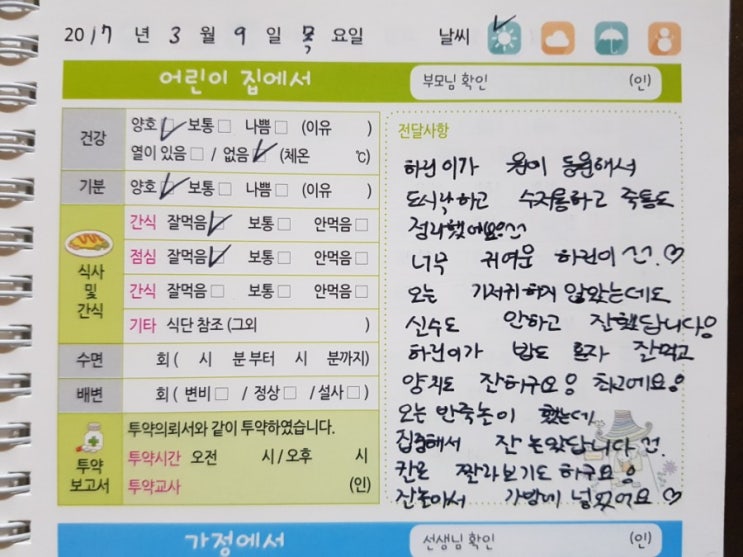 2017 년 3 월 9 일 목 요일 날씨
어린이 집에서 부모님 확인 (인)
건강 양호 보통 나쁨 (이유 )
열이 있음 / 없음 (체온 ℃)
기분 양호 보통 나쁨 (이유 )
식사 및 간식
간식 잘먹음 보통 안먹음
점심 잘먹음 보통 안먹음
간식 잘먹음 보통 안먹음
기타 식단 참조 (그외 )
수면 회 ( 시 분부터 시 분까지)
배변 회 ( 변비 / 정상 / 설사 )
투약 보고서
투약의뢰서와 같이 투약하였습니다.
투약시간 오전 시 / 오후 시
투약교사 (인)
전달사항
하린이가 등원해서
도시락하고 수저통하고 죽통도
정리했어요
너무 귀여운 하린이 ♡
오늘 기저귀하지 않았는데도
실수도 안하고 잘했답니다
하린이가 밥도 혼자 잘먹고
양치도 잘하구요 최고에요
오늘 반죽놀이 했는데
집중해서 잘 놀았답니다
칼로 잘라보기도 하구요
잘놀아서 가방에 넣었어요 ♡
가정에서 선생님 확인 (인)